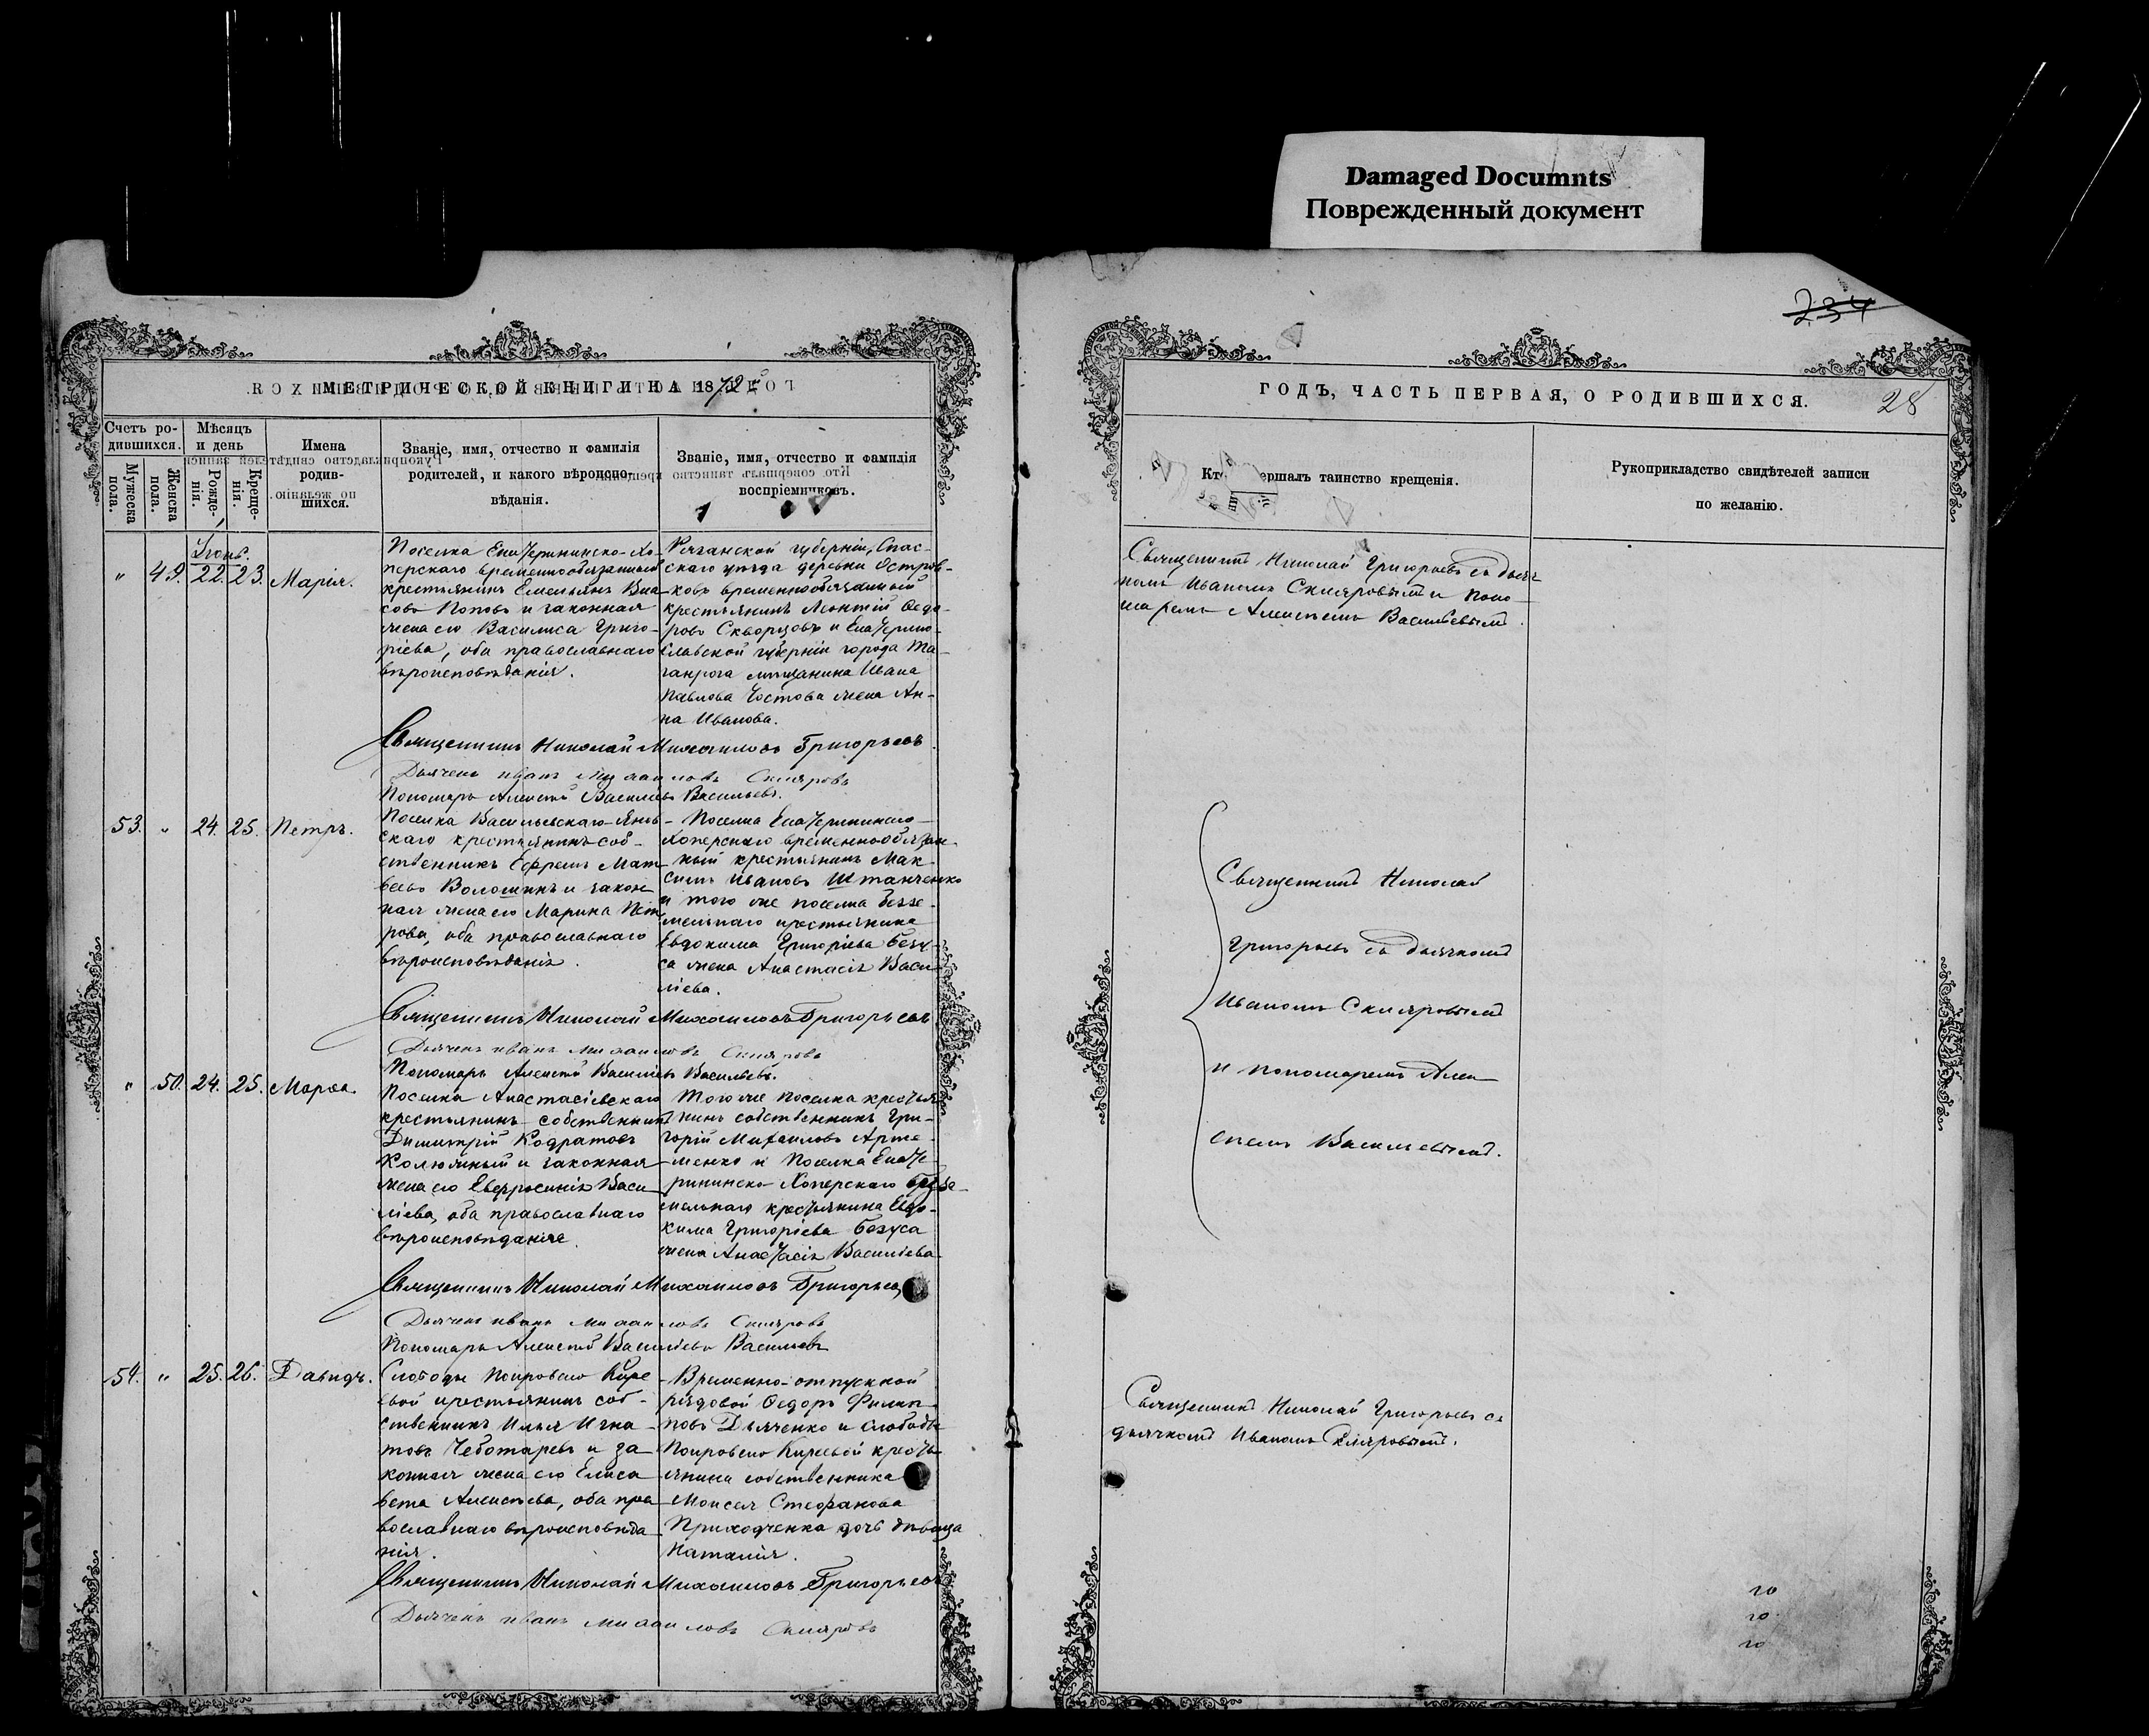 Damaged Documnts
Поврежденный документ
234
МЕТРИЧЕСКОЙ КНИГИ НА 1872
Счетъ ро-
дившихся.
Мужеска
пола.
Женска
пола.
Мѣсяцъ
и день
Рожде-
нія.
Креще-
нія.
Имена
родив-
шихся.
Званіе, имя, отчество и фамилія
родителей, и какого вѣроиспо-
вѣданія.
Званіе, имя, отчество и фамилія
воспріемниковъ.
Іюнь.
" 49. 22. 23. Марія.
Поселка Екатерининско-Хо-
перскаго временнообязанный
крестьянинъ Емельянъ Вла-
совъ Поповъ и законная
жена его Василиса Григо-
ріева, оба православнаго
вѣроисповѣданія.
Рязанской губерніи, Спас-
скаго уѣзда деревни Остров-
ковъ временнообязанный
крестьянинъ Леонтій Ѳедо-
ровъ Скворцовъ и Екатерино-
славской губерніи города Та-
ганрога мѣщанина Ивана
Павлова Чостова жена Ан-
на Иванова.
Священникъ Николай Михаиловъ Григорьевъ
Дьячекъ иванъ Михаиловъ Скляровъ
Пономарь Алексѣй Васильевъ Васильевъ.
53. " 24. 25. Петръ.
Поселка Васильевскаго-Янов-
скаго крестьянинъ соб-
ственникъ Ефремъ Мат-
вѣевъ Волошинъ и закон-
ная жена его Марина Пет-
рова, оба православнаго
вѣроисповѣданія.
Поселка Екатерининско-
Хоперскаго временнообязан-
ный крестьянинъ Мак-
симъ Ивановъ Штанченко
и того же поселка беззе-
мельнаго крестьянина
Евдокима Григоріева Безу-
са жена Анастасія Васи-
ліева.
Священникъ Николай Михаиловъ Григорьевъ
Дьячекъ иванъ Михаиловъ Скляровъ
Пономарь Алексѣй Васильевъ Васильевъ.
" 50. 24. 25. Марѳа.
Поселка Анастасіевскаго
крестьянинъ-собственникъ
Димитрій Кодратовъ
Колюжный и законная
жена его Евфросинія Васи-
ліева, оба православнаго
вѣроисповѣданія.
Того же поселка крестья-
нинъ собственникъ Гри-
горій Михаиловъ Арте-
менко и поселка Екате-
рининско-Хоперскаго беззе-
мельнаго крестьянина Евдо-
кима Григоріева Безуса
жена Анастасія Василіева.
Священникъ Николай Михаиловъ Григорьевъ
Дьячекъ иванъ Михаиловъ Скляровъ
Пономарь Алексѣй Васильевъ Васильевъ
54. " 25. 26. Давидъ.
Слободы Покровско Кире-
евой крестьянинъ соб-
ственникъ Илья Игна-
товъ Чеботаревъ и за-
конная жена его Елиса-
вета Алексѣева, оба пра-
вославнаго вѣроисповѣда-
нія.
Временно-отпускной
рядовой Ѳедоръ Филип-
повъ Дьяченко и слободы
Покровско Киреевой крестья-
янина собственника
Моисея Стефанова
Приходченка дочь дѣвица
Наталія.
Священникъ Николай Михаиловъ Григорьевъ
Дьячекъ иванъ Михаиловъ Скляровъ
ГОДЪ, ЧАСТЬ ПЕРВАЯ, О РОДИВШИХСЯ.
28
Кто ершалъ таинство крещенія.
Рукоприкладство свидѣтелей записи
по желанію.
Священникъ Николай Григорьевъ съ дьяч-
комъ Иваномъ Скляровымъ и поно-
маремъ Алексѣемъ Васильевымъ.
Священникъ Николай
Григорьевъ съ дьячкомъ
Иваномъ Скляровымъ
и пономаремъ Алек-
сѣемъ Васильевымъ.
Священникъ Николай Григорьевъ съ
дьячкомъ Иваномъ Скляровымъ.